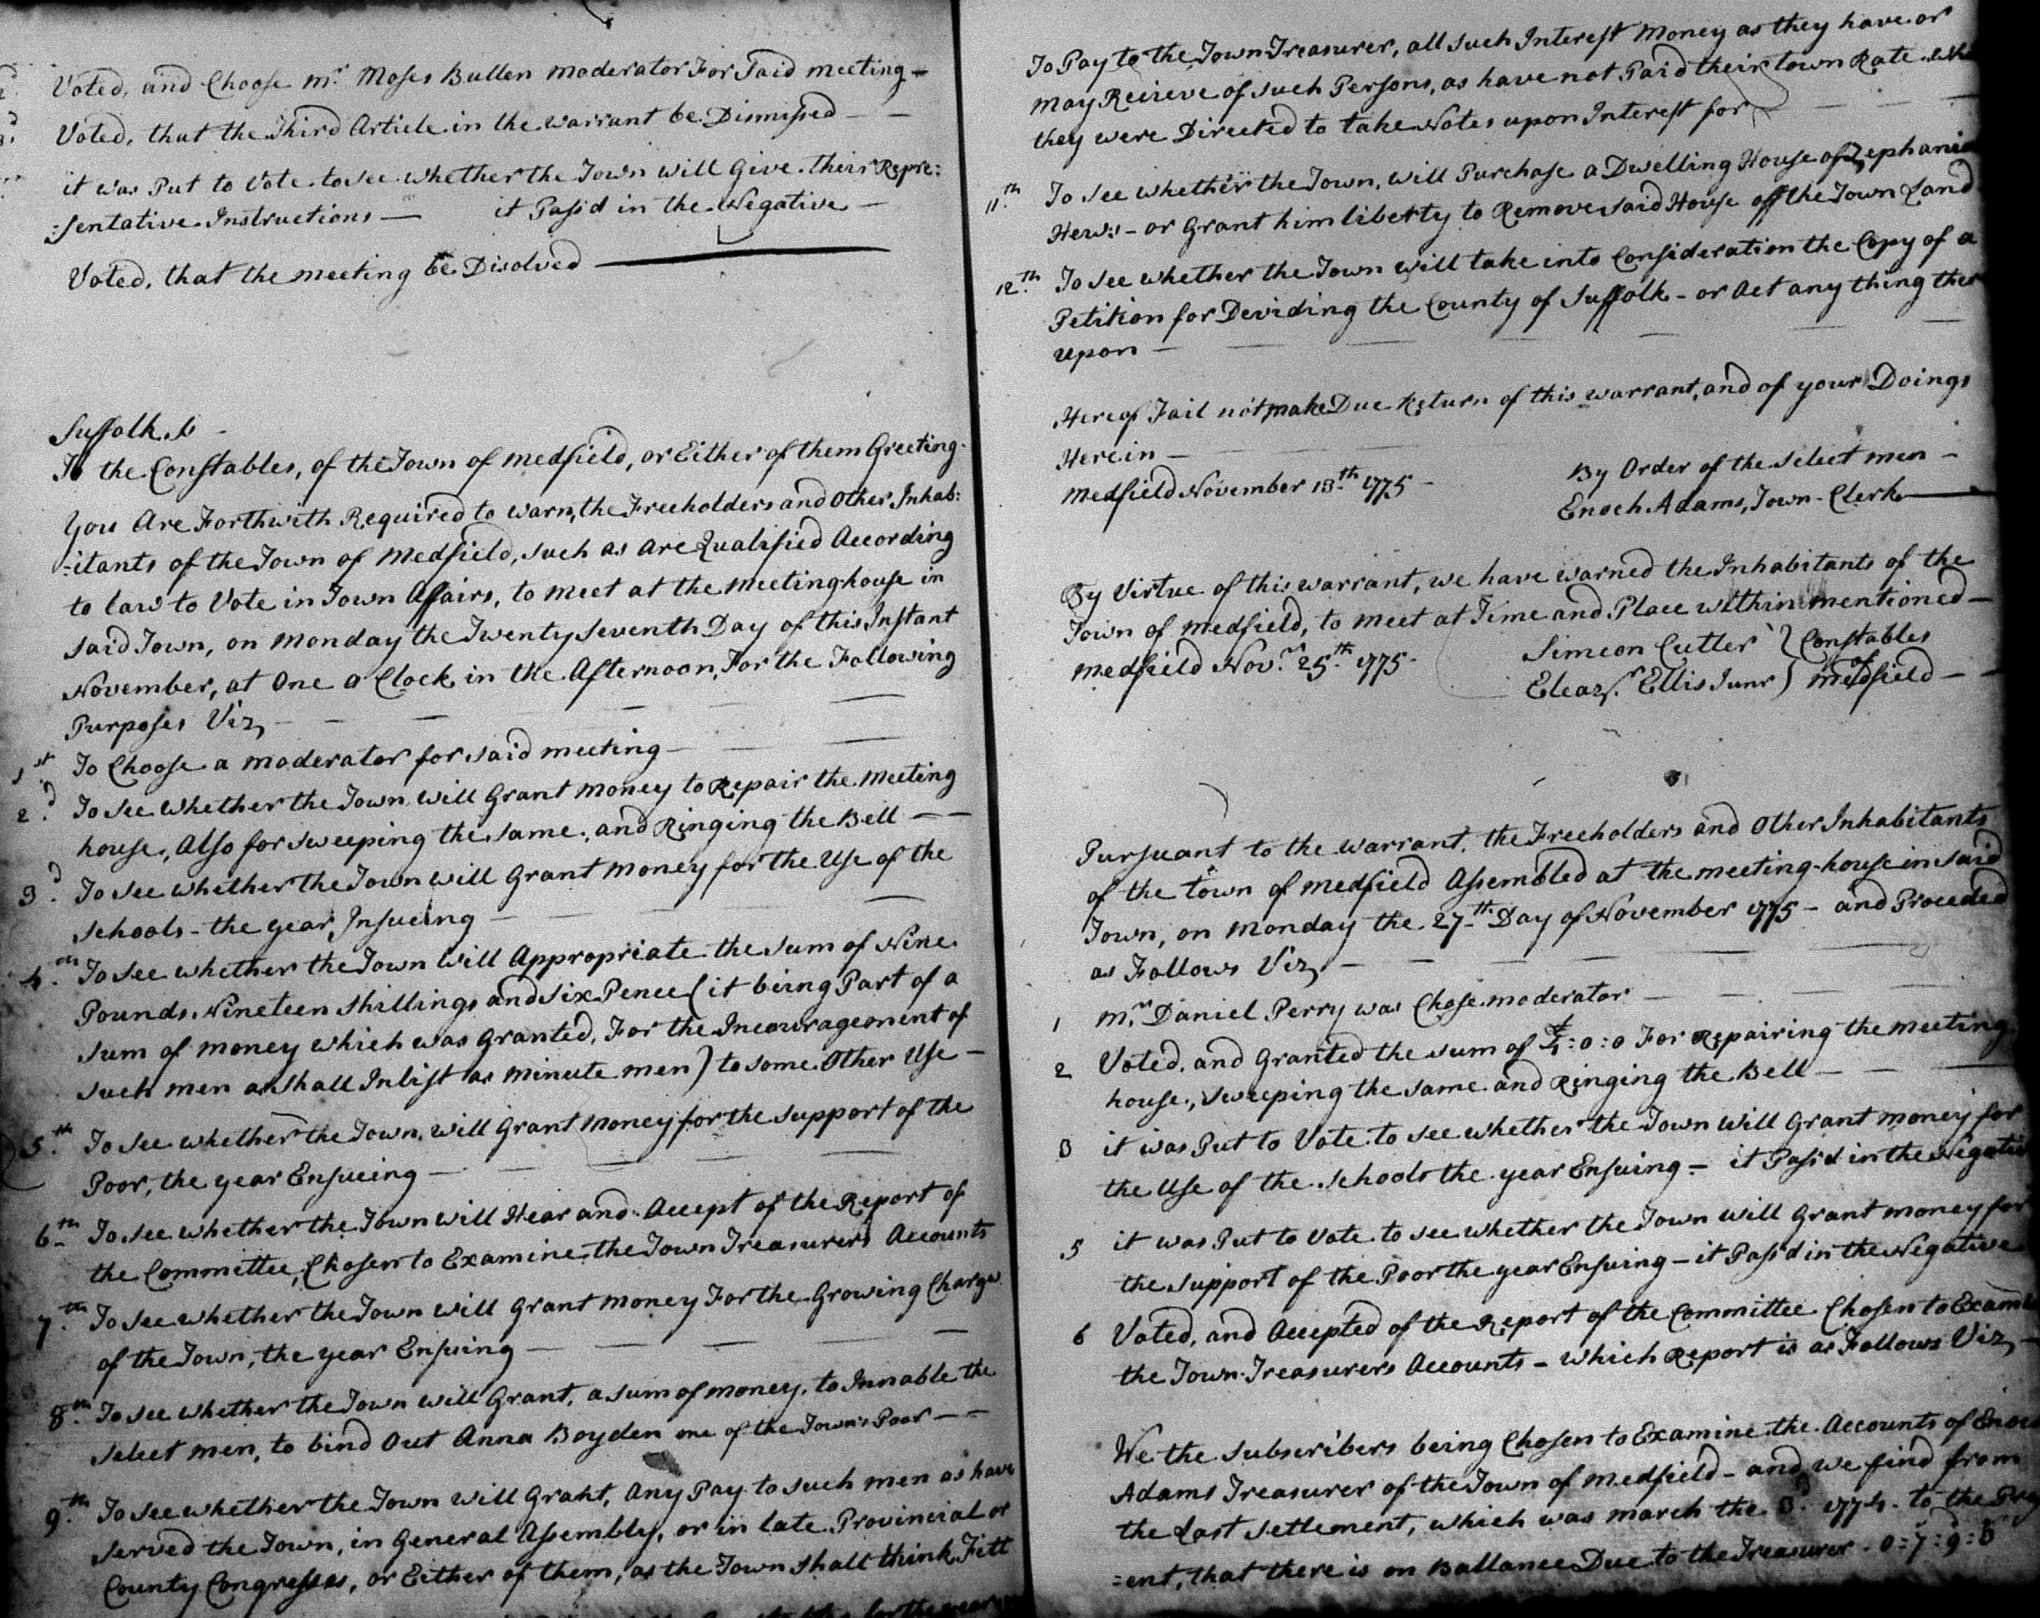 Voted, and Choose mr. Moses Bullen moderator For Said meeting —
Voted, that the Third Article in the warrant be Dismissed — —
it was Put to Vote to see whether the Town will Give their Repre:
:sentative Instructions — it Passd in the Negative —
Voted, that the meeting be Disolved
Suffolk, ss
To the Constables, of the Town of medfield, or Either of them Greeting.
You Are Forthwith Required to warn, the Freeholders and Other Inhab:
:itants of the Town of Medfield, such as are Qualified According
to law to Vote in Town Affairs, to meet at the meeting-house in
said Town, on monday the Twenty seventh Day of this Instant
November, at One a Clock in the Afternoon, For the Following
Purposes Viz,
1st To Choose a moderator for said meeting —
2.d To see whether the Town will Grant money to Repair the meeting
house, Also for sweeping the same, and Ringing the Bell — —
3.d To see whether the Town will Grant money for the Use of the
schools - the year Insueing
4. To see whether the Town will Appropriate the sum of Nine
Pounds, Nineteen shillings and six Pence (it being Part of a
sum of money which was Granted, For the Incouragement of
such men as shall Inlist as minute men) to some Other Use —
5.th To see whether the Town, will Grant money for the support of the
Poor, the year Ensueing —
6th To see whether the Town will Hear and Accept of the Report of
the Committee, Chosen to Examine the Town Treasurers Accounts
7.th To see whether the Town will Grant money For the Growing Charge
of the Town, the year Ensuing —
8.th To see whether the Town will Grant, a sum of money, to Innable the
select men, to bind Out Anna Boyden one of the Town's Poor — —
9.th To see whether the Town will Grant, Any Pay to such men as have
served the Town, in General Assembly, or in late Provincial or
County Congresses, or Either of them, as the Town shall think Fitt
for the year
To Pay to the Town Treasurer, all such Interest money as they have or
may Recieve of such Persons, as have not Paid their town Rate
they were Directed to take Notes upon Interest for
11.th To see whether the Town, will Purchase a Dwelling House of Zephaniah
Hews - or Grant him liberty to Remove said House off the Town Land
12.th To see whether the Town will take into Consideration the Copy of a
Petition for Deviding the County of Suffolk - or Act any thing ther
upon —
Hereof Fail not, make Due Return of this warrant, and of your Doings
Herein —
Medfield November 18.th 1775 -
By Order of the select men -
Enoch Adams, Town - Clerk
By Virtue of this warrant, we have warned the Inhabitants of the
Town of medfield, to meet at Time and Place within mentioned —
medfield Nov.r 25.th 1775 -
Simeon Cutler } Constables
of
Eleazr. Ellis Junr } medfield — —
Pursuant to the warrant, the Freeholders and Other Inhabitants
of the town of medfield Assembled at the meeting-house in said
Town, on monday the 27th. Day of November 1775 - and Proceeded
as Follows Viz,
1 mr. Daniel Perry was Chose moderator —
2 Voted, and Granted the sum of £4:0:0 For Repairing the meeting
house, sweeping the same and Ringing the Bell —
3 it was Put to Vote to see whether the Town will Grant money for
the Use of the schools the year Ensuing - it Passd in the Negative
5 it was Put to Vote to see whether the Town will Grant money for
the support of the Poor the year Ensuing - it Passd in the Negative
6 Voted, and Accepted of the Report of the Committee Chosen to Examine
the Town Treasurers Accounts - which Report is as Follows Viz,
We the subscribers being Chosen to Examine the Accounts of Enoch
Adams Treasurer of the Town of medfield - and we find from
the Last settlement, which was march the 3.d 1774 - to the Pres
:ent, that there is on Ballance Due to the Treasurer - 0:7:9: